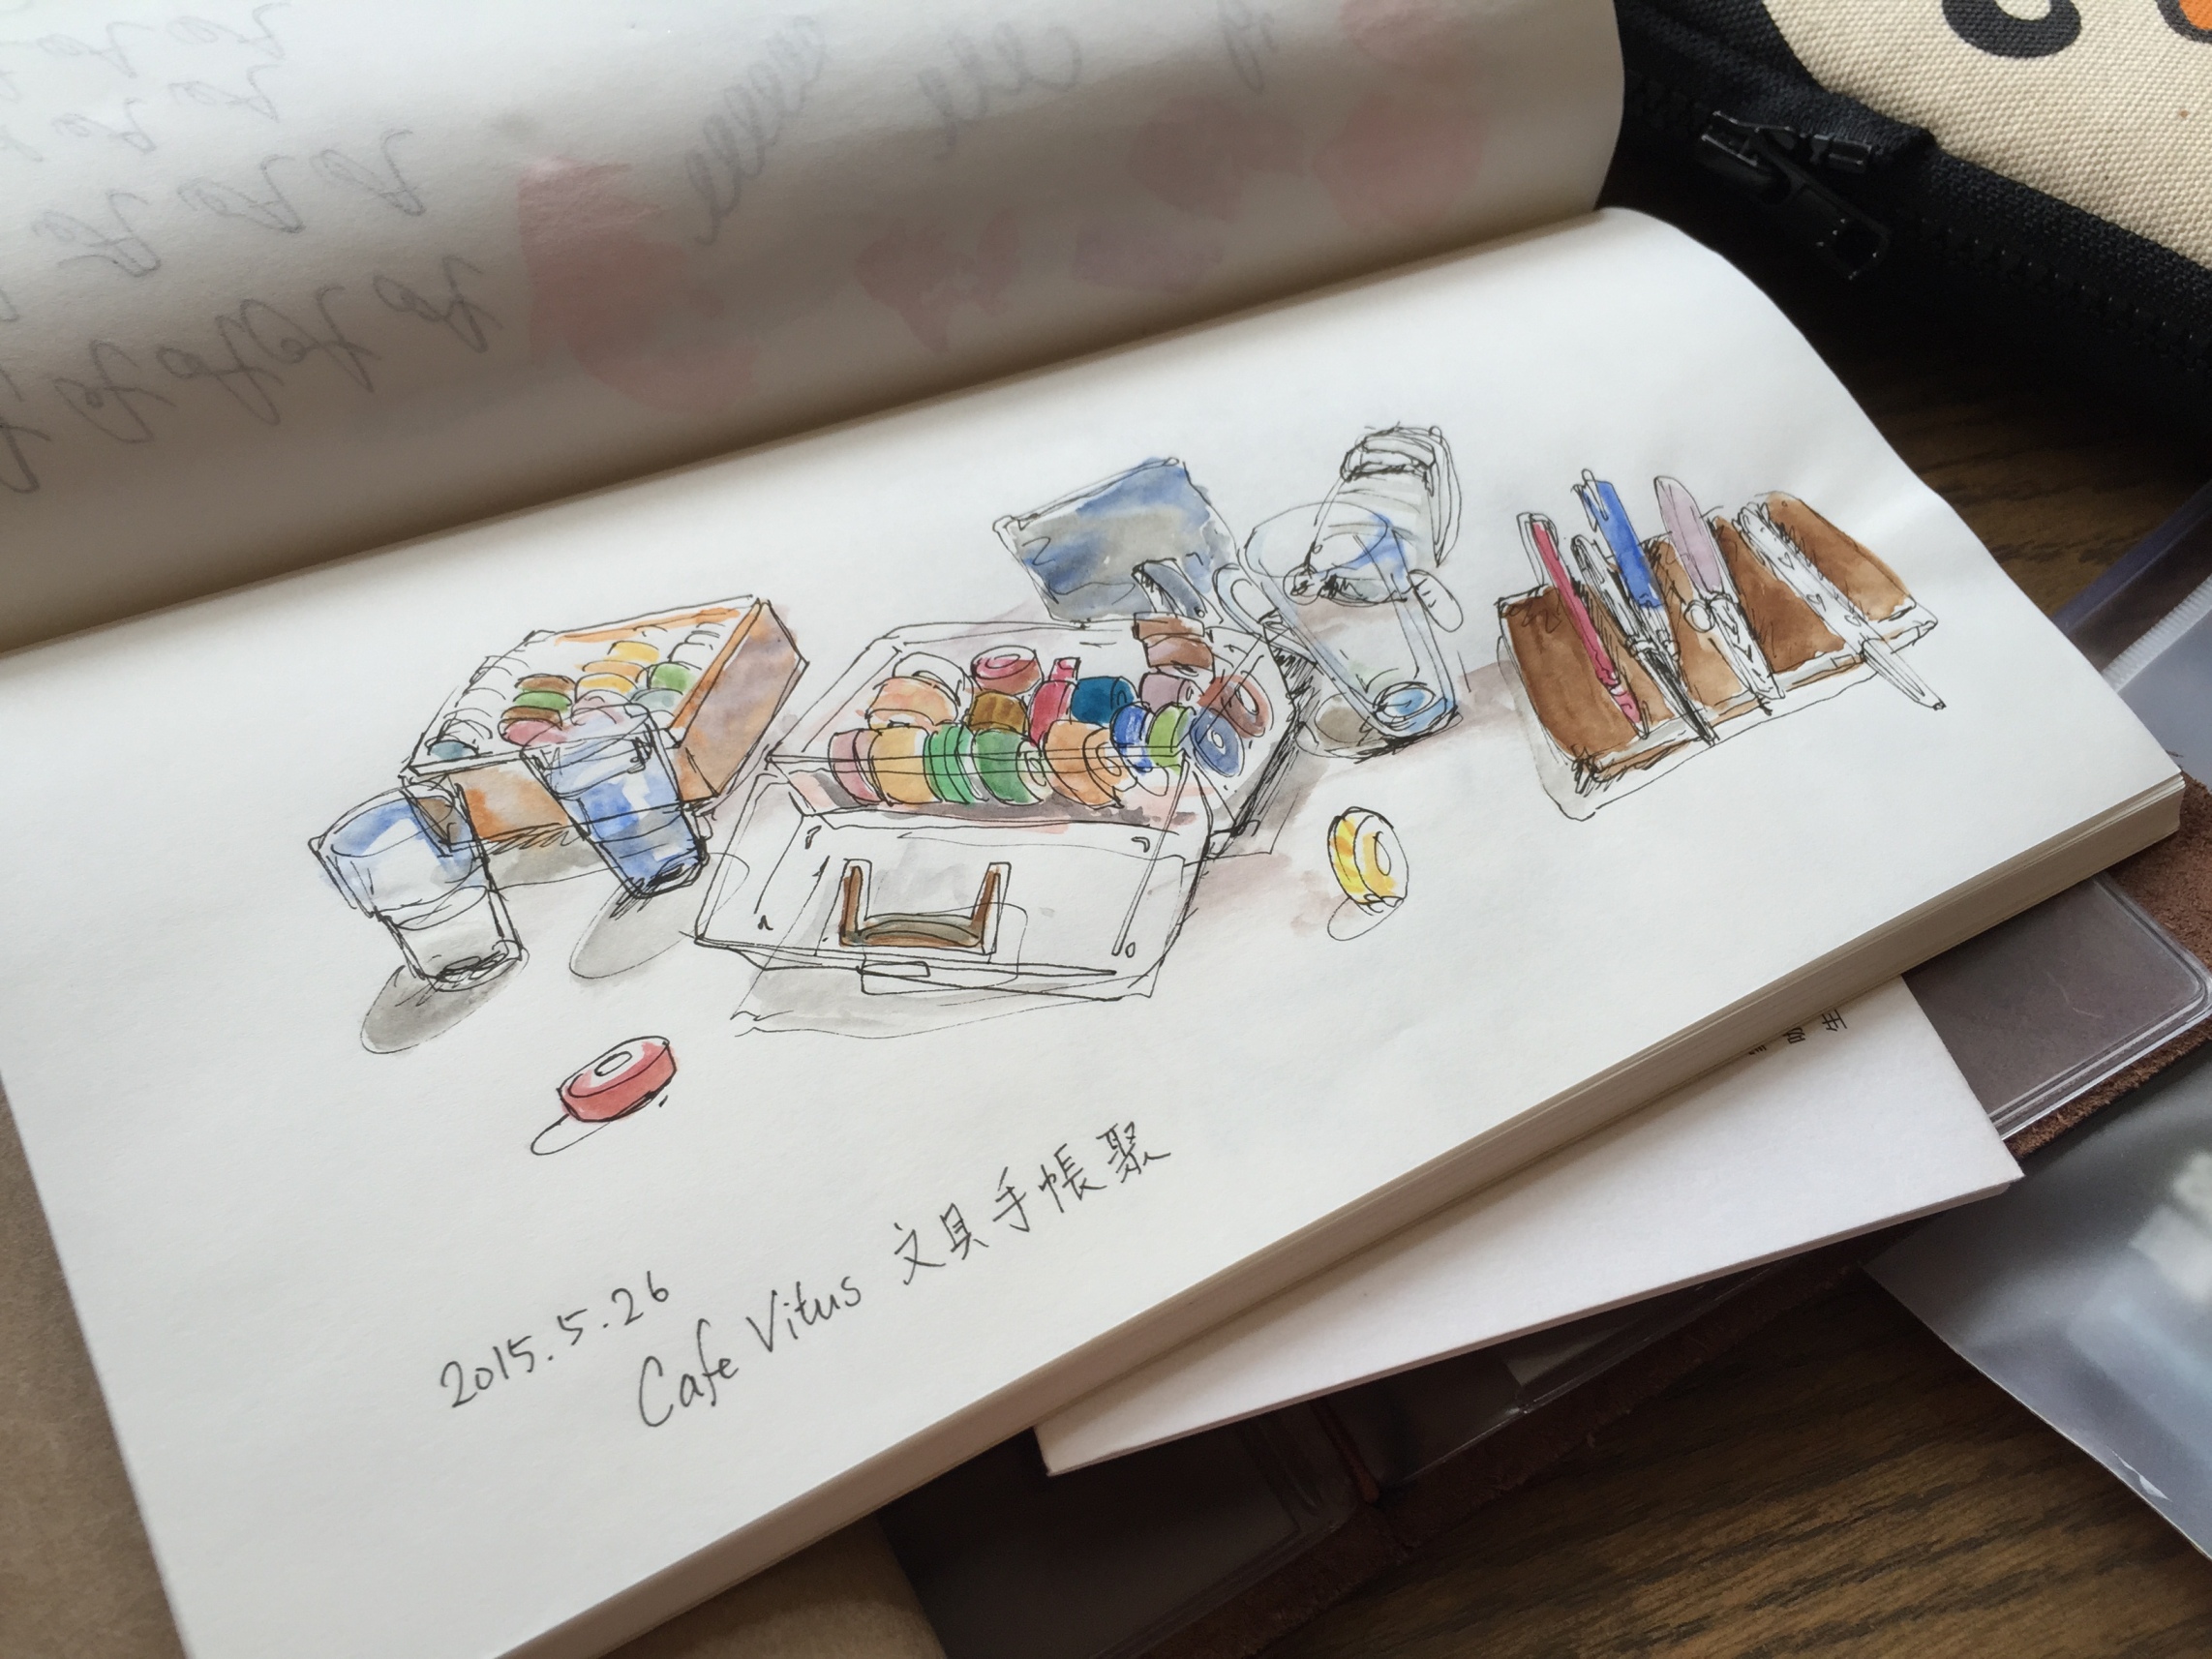 2015.5.26
Cafe Vitus 文具手帳聚